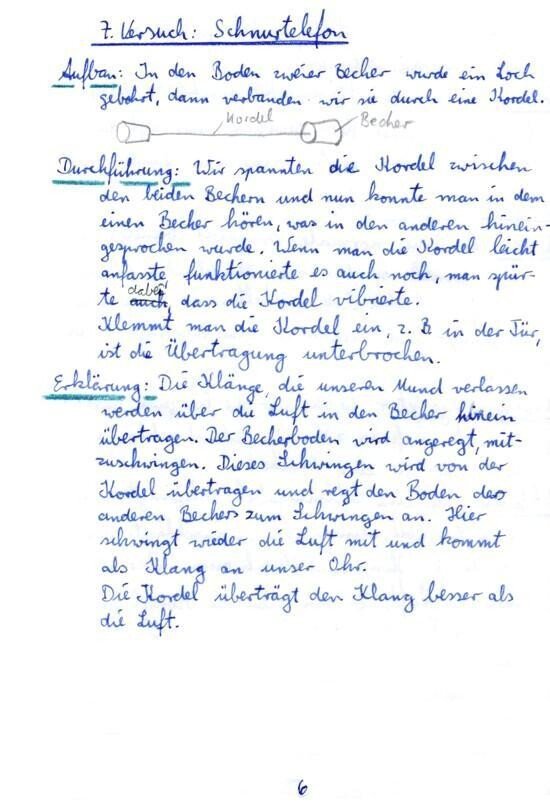 7. Versuch: Schnurtelefon
Aufbau: In den Boden zweier Becher wurde ein Loch
gebohrt, dann verbanden wir sie durch eine Kordel.
Kordel
Becher
Durchführung: Wir spannten die Kordel zwischen
den beiden Bechern und nun konnte man in dem
einen Becher hören, was in den anderen hinein-
gesprochen wurde. Wenn man die Kordel leicht
anfasste funktionierte es auch noch, man spür-
dabei
te auch, dass die Kordel vibrierte.
Klemmt man die Kordel ein, z. B in der Tür,
ist die Übertragung unterbrochen.
Erklärung: Die Klänge, die unseren Mund verlassen
werden über die Luft in den Becher hinein
übertragen. Der Becherboden wird angeregt, mit-
zuschwingen. Dieses Schwingen wird von der
Kordel übertragen und regt den Boden des
anderen Bechers zum Schwingen an. Hier
schwingt wieder die Luft mit und kommt
als Klang an unser Ohr.
Die Kordel überträgt den Klang besser als
die Luft.
6